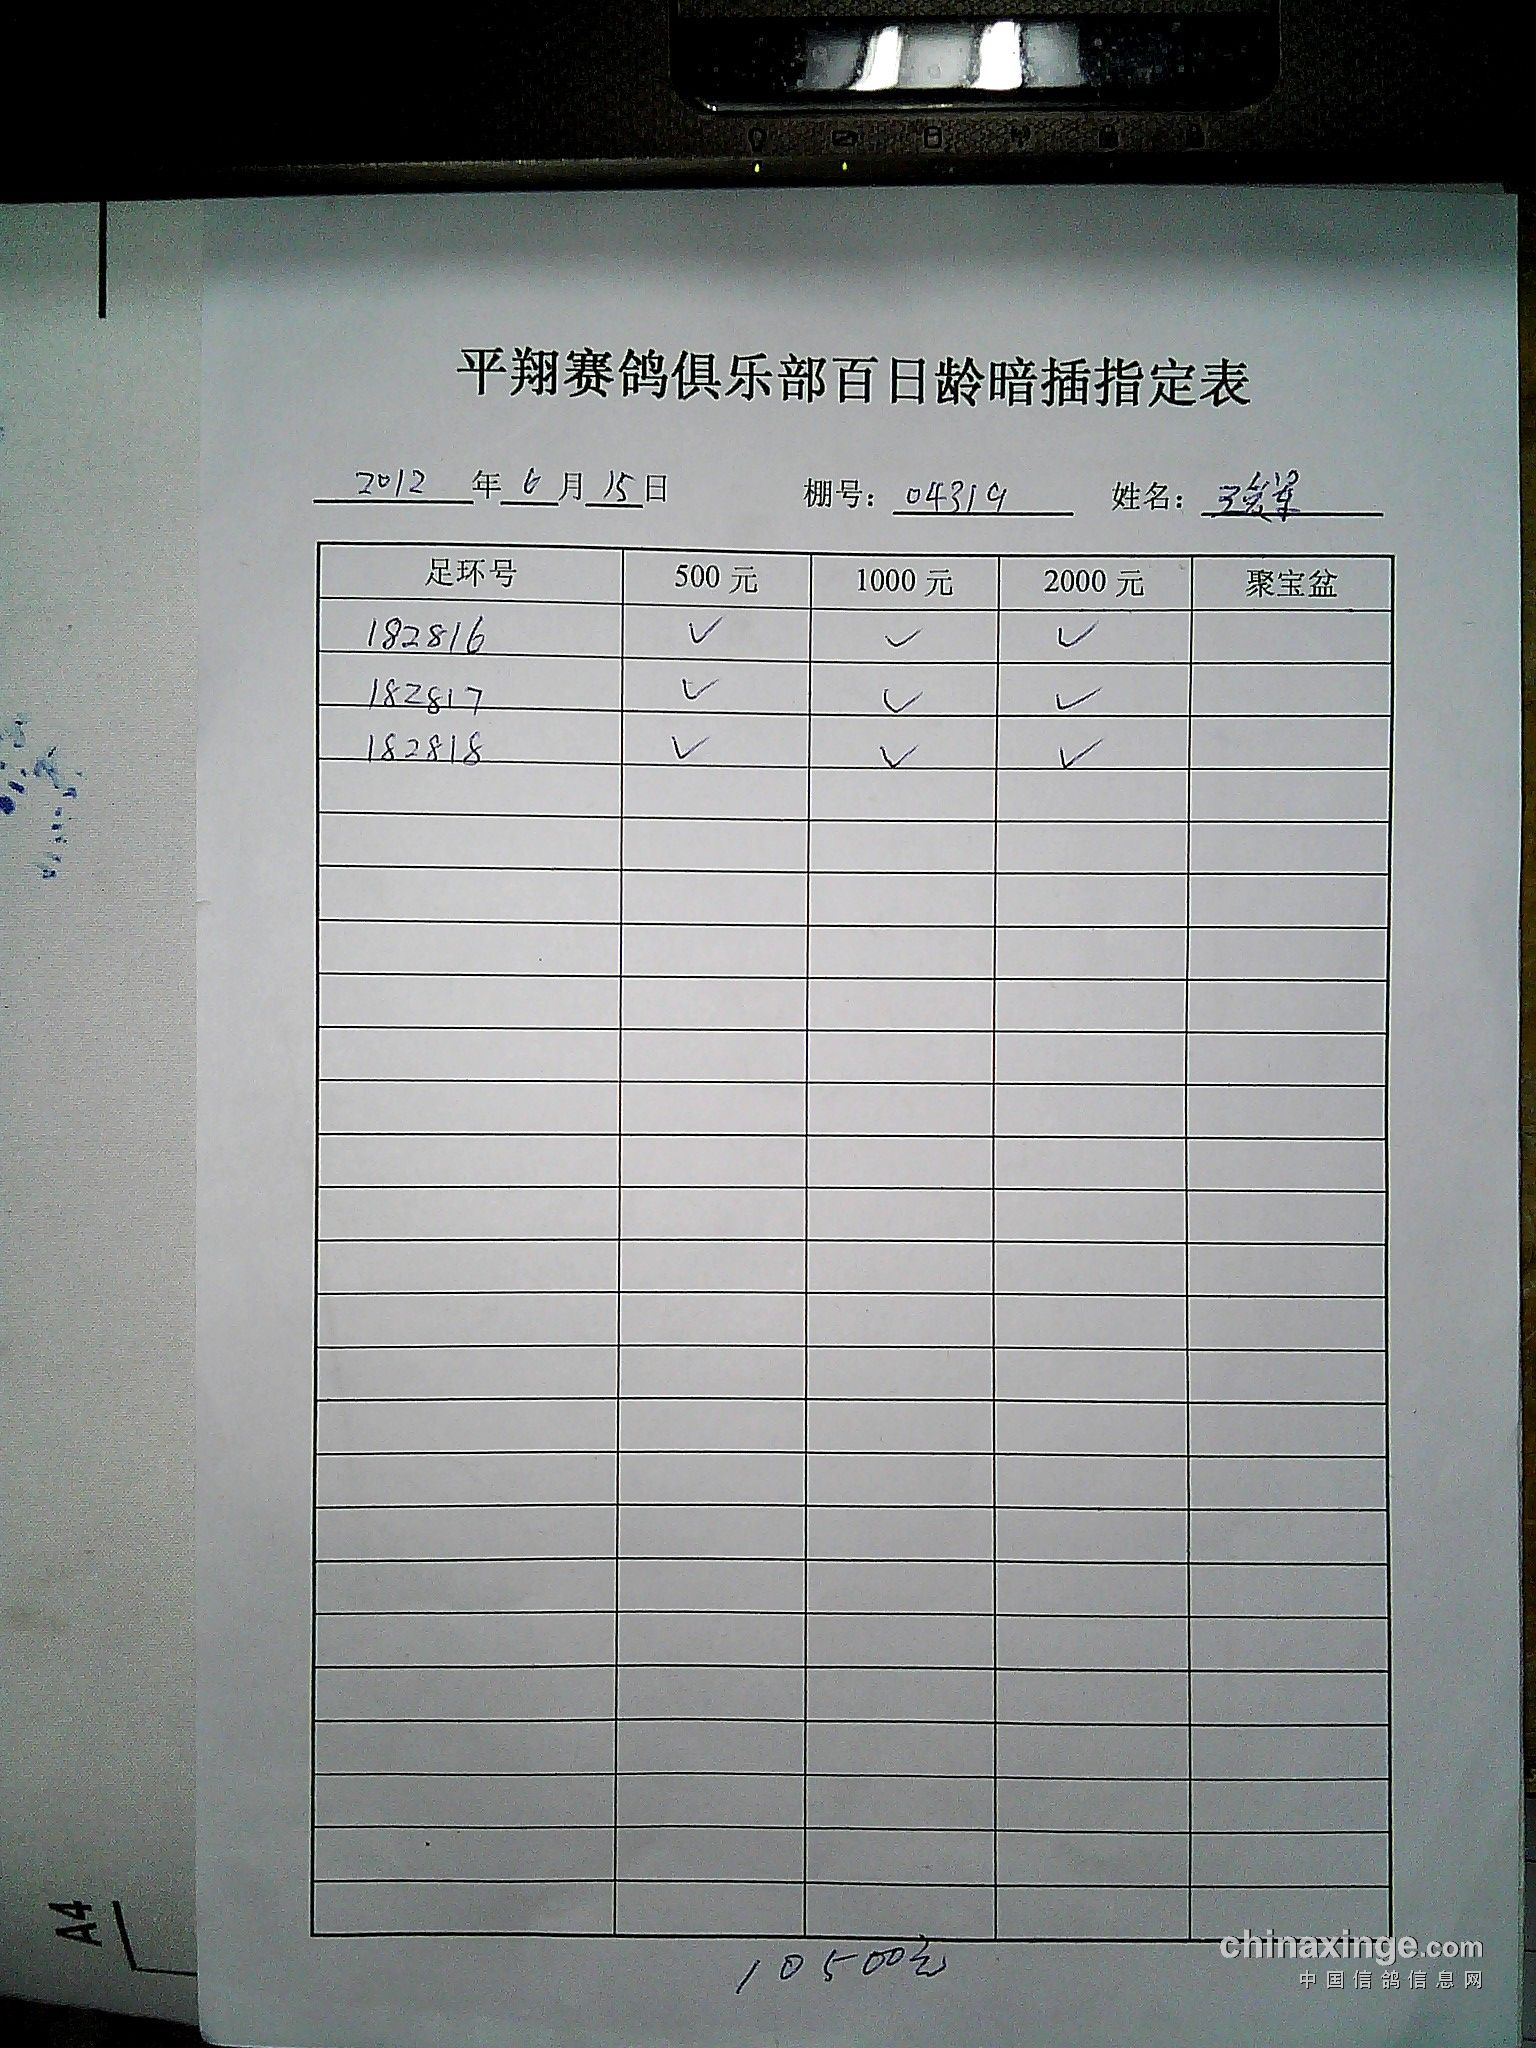 平翔赛鸽俱乐部百日龄暗插指定表
2012年6月15日 棚号：04319 姓名：王
足环号 500元 1000元 2000元 聚宝盆
182816 ✓ ✓ ✓
182817 ✓ ✓ ✓
182818 ✓ ✓ ✓
10500元
A4
chinaxinge.com
中国信鸽信息网